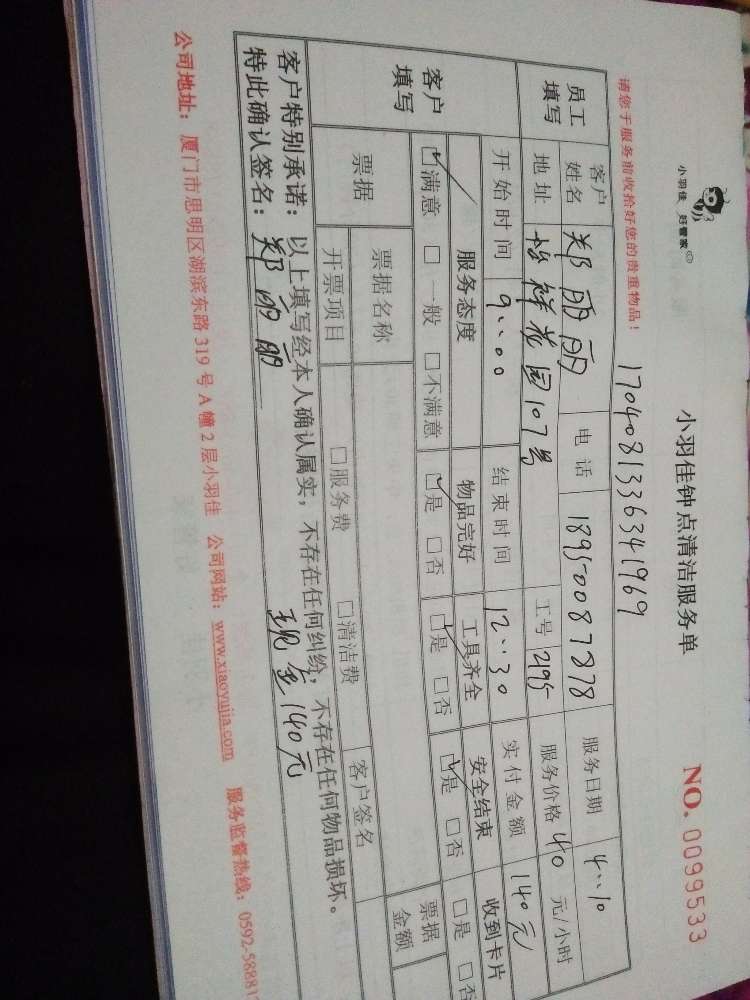 小羽佳 好管家
小羽佳钟点清洁服务单
NO. 0099533
请您于服务前收拾好您的贵重物品！
170408133634 1969
员工填写
客户姓名 郑丽丽 电话 18950087878 服务日期 4..10
地址 怡祥花园107号 工号 2195 服务价格 40 元/小时
开始时间 9..00 结束时间 12..30 实付金额 140元
客户填写
服务态度 物品完好 工具齐全 安全结束 收到卡片
☑满意 □一般 □不满意 ☑是 □否 ☑是 □否 ☑是 □否 □是 □否
票据 票据名称 客户签名 票据金额
开票项目 □服务费 □清洁费
客户特别承诺：以上填写经本人确认属实，不存在任何纠纷，不存在任何物品损坏。
特此确认签名：郑丽丽 现金140元
公司地址：厦门市思明区湖滨东路319号A幢2层小羽佳 公司网站：www.xiaoyujia.com 服务监督热线：0592-58881